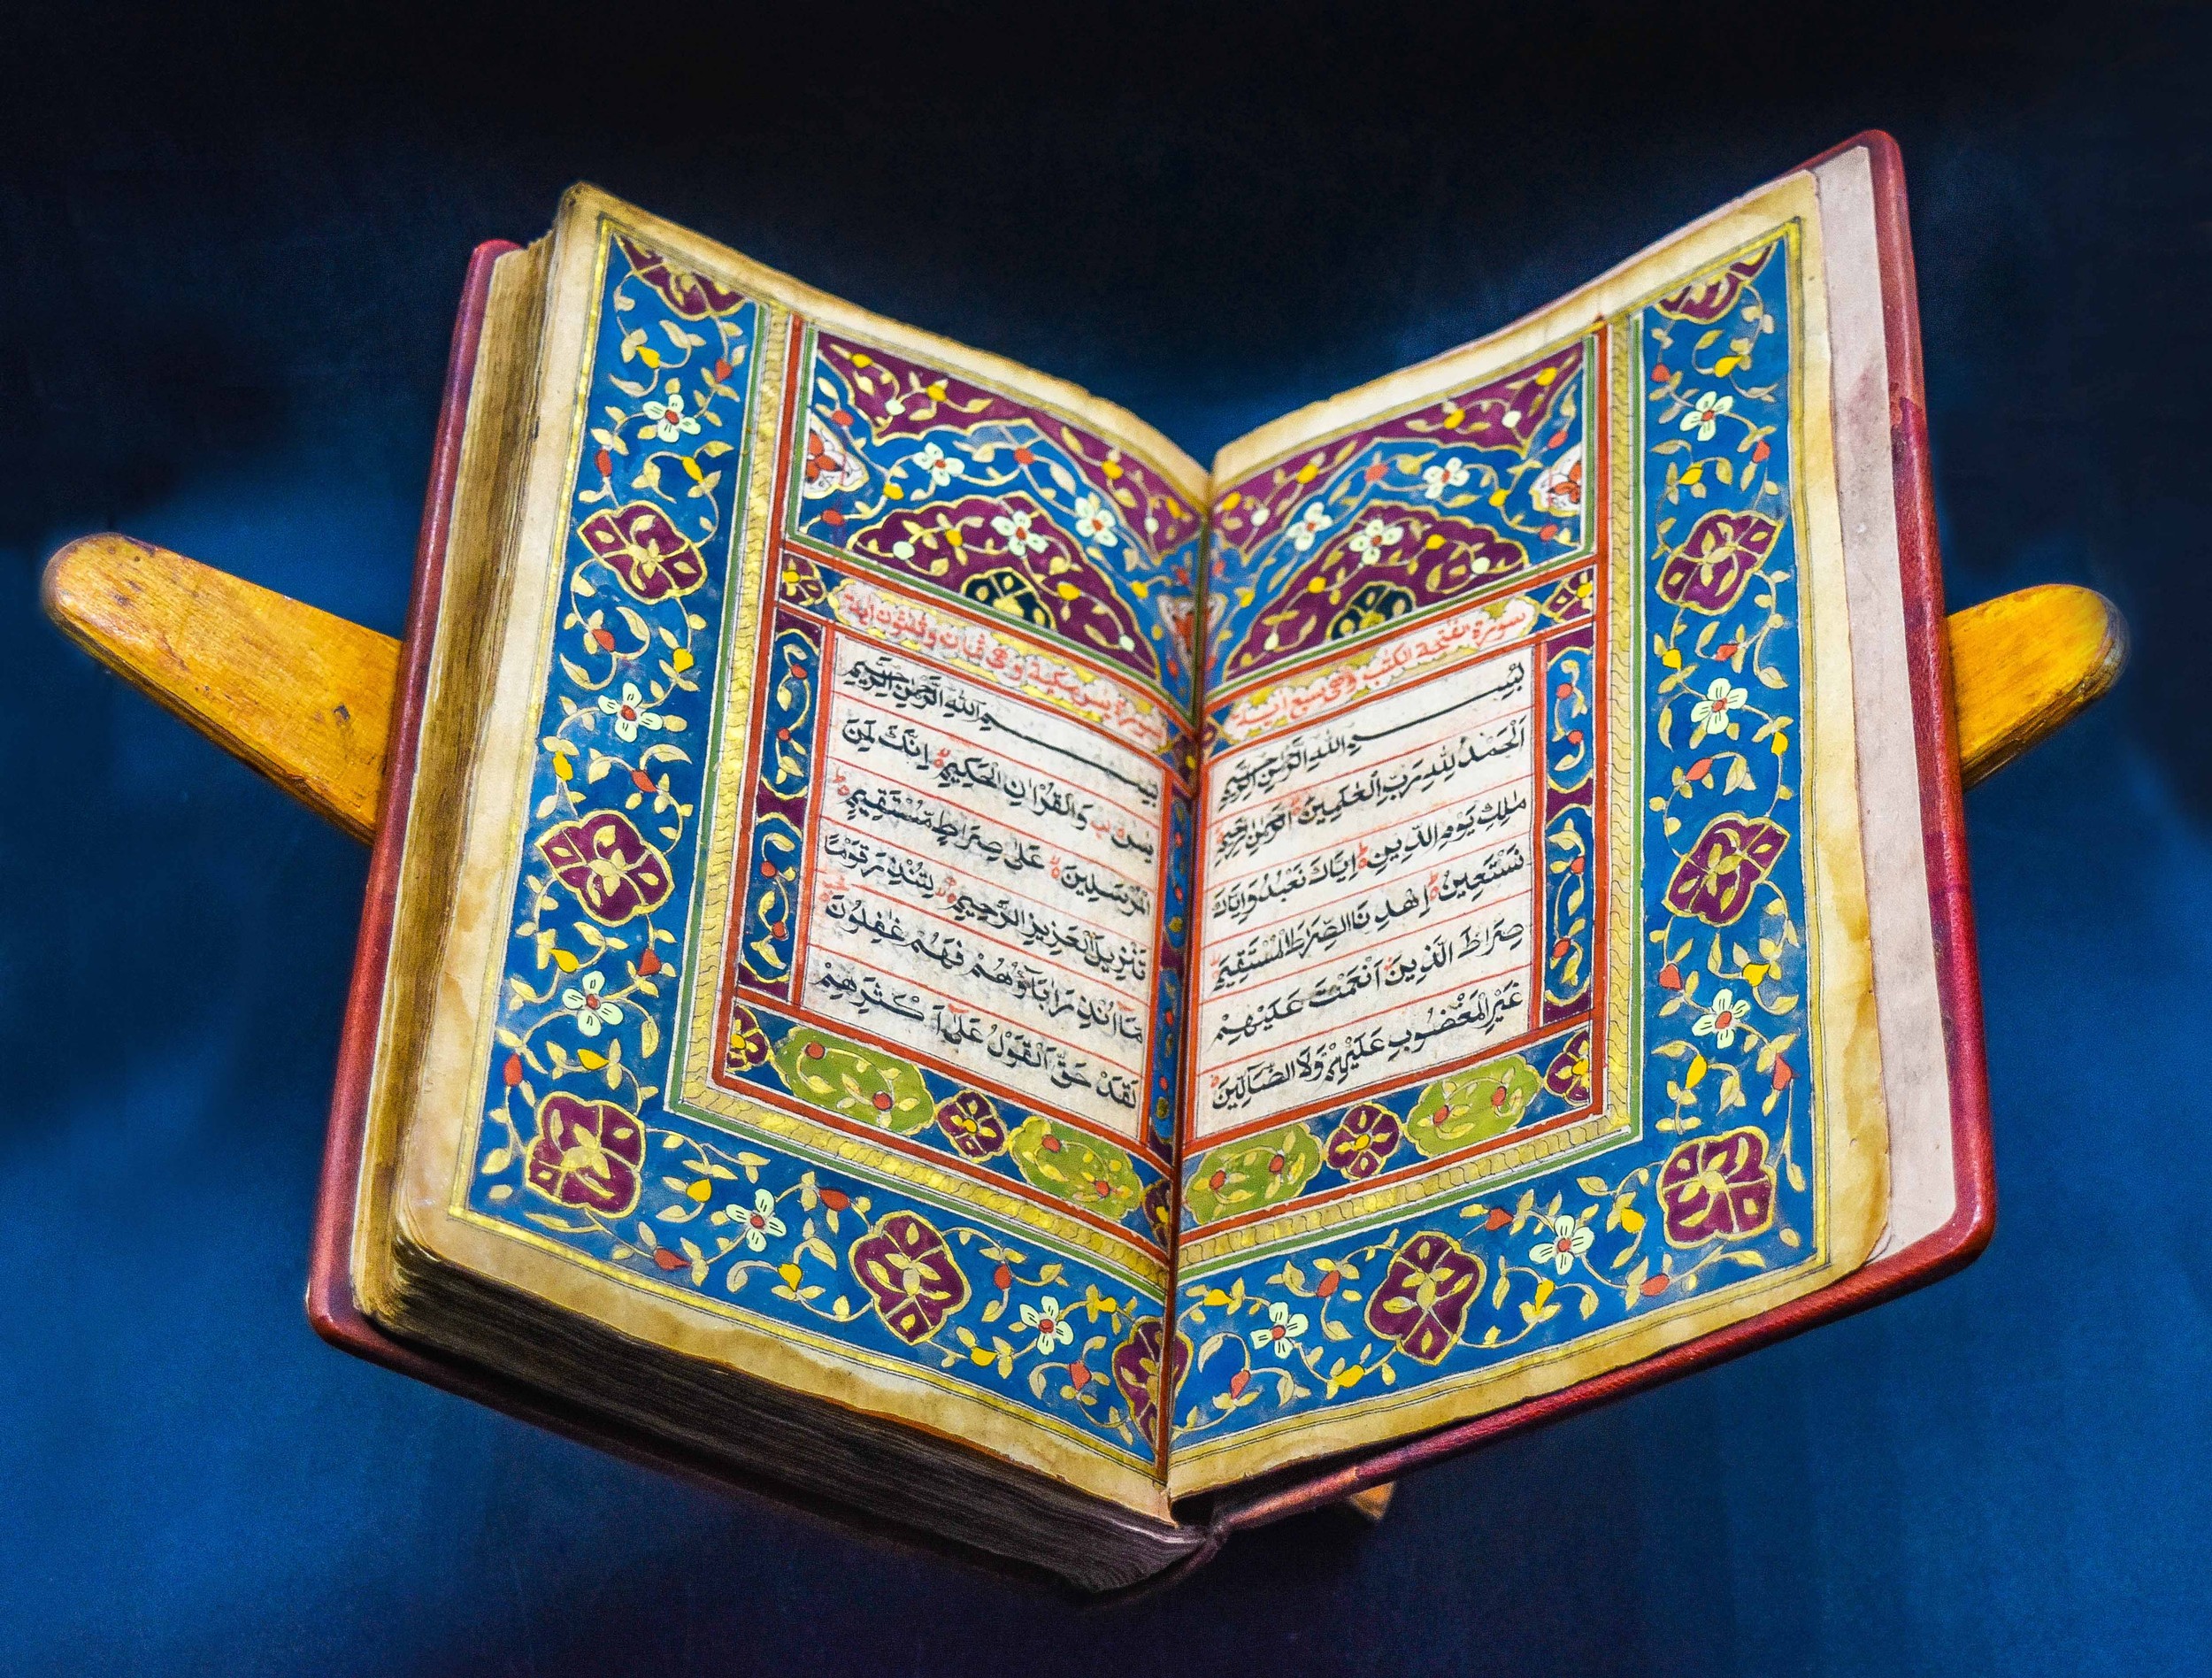 سورة فتحة الكتب وهي سبع آية
بِسْمِ اللهِ الرَّحْمٰنِ الرَّحِيْمِ
اَلْحَمْدُ لِلّٰهِ رَبِّ الْعٰلَمِيْنَ الرَّحْمٰنِ الرَّحِيْمِ
مٰلِكِ يَوْمِ الدِّيْنِ ط اِيَّاكَ نَعْبُدُ وَاِيَّاكَ
نَسْتَعِيْنُ ط اِهْدِنَا الصِّرَاطَ الْمُسْتَقِيْمَ
صِرَاطَ الَّذِيْنَ اَنْعَمْتَ عَلَيْهِمْ
غَيْرِ الْمَغْضُوْبِ عَلَيْهِمْ وَلَا الضَّالِّيْنَ
سورة يس مكية وهي ثمان وثلثون آية
بِسْمِ اللهِ الرَّحْمٰنِ الرَّحِيْمِ
يٰسٓ وَالْقُرْاٰنِ الْحَكِيْمِ اِنَّكَ لَمِنَ
الْمُرْسَلِيْنَ عَلٰى صِرَاطٍ مُّسْتَقِيْمٍ ط
تَنْزِيْلَ الْعَزِيْزِ الرَّحِيْمِ لا لِتُنْذِرَ قَوْمًا
مَّا اُنْذِرَ اٰبَآؤُهُمْ فَهُمْ غٰفِلُوْنَ
لَقَدْ حَقَّ الْقَوْلُ عَلٰى اَكْثَرِهِمْ